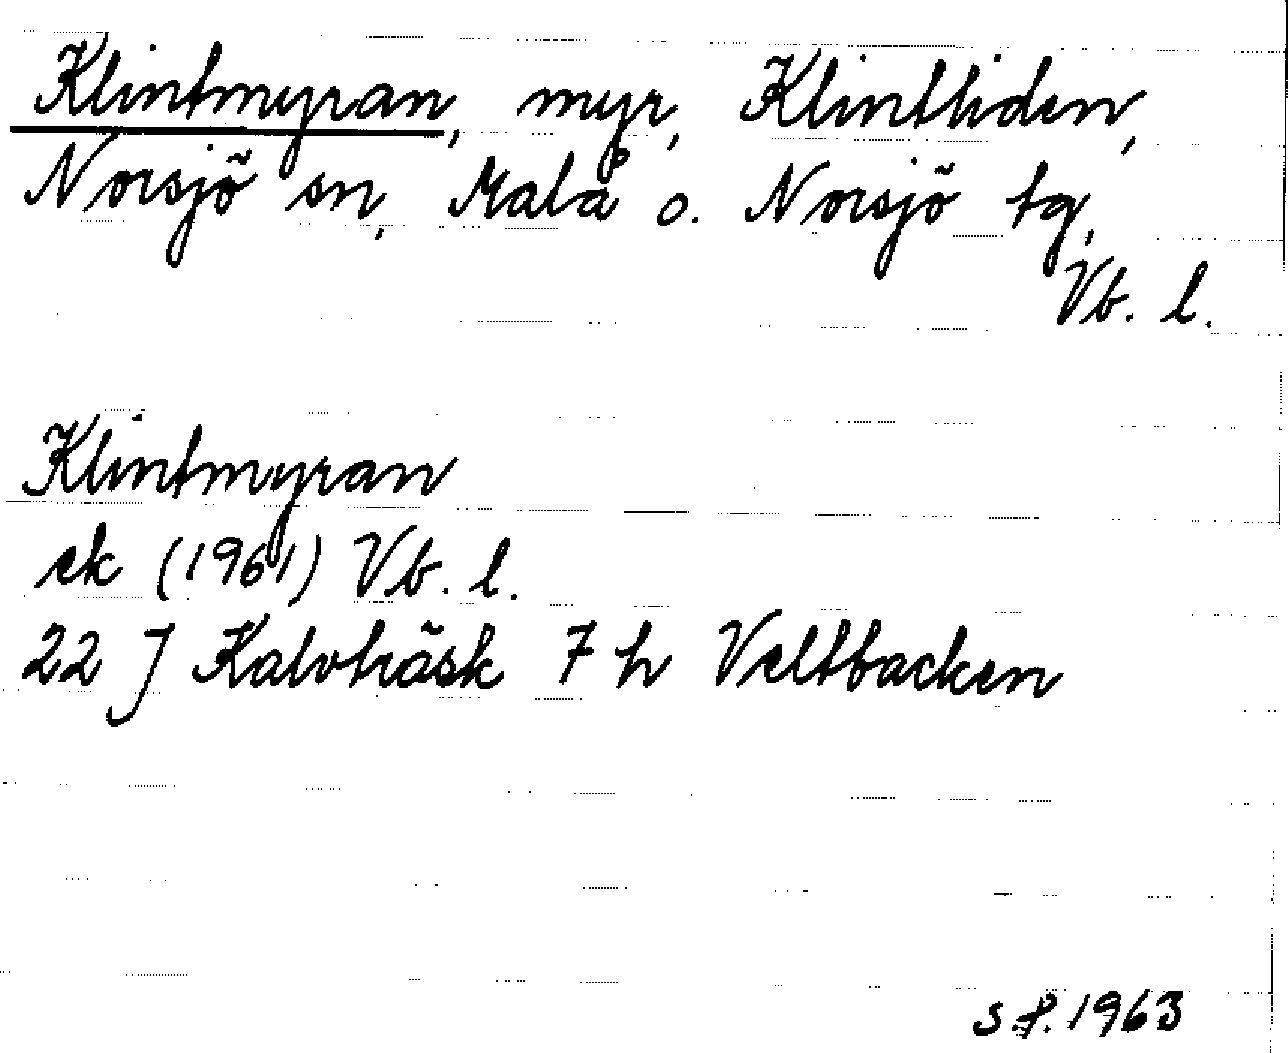 Klintmyran, myr, Klintliden,
Norsjö sn, Malå o. Norsjö tg,
Vb. l.
Klintmyran
ek (1961) Vb. l.
22 J Kalvträsk 7 h Veltbacken
s.f. 1963